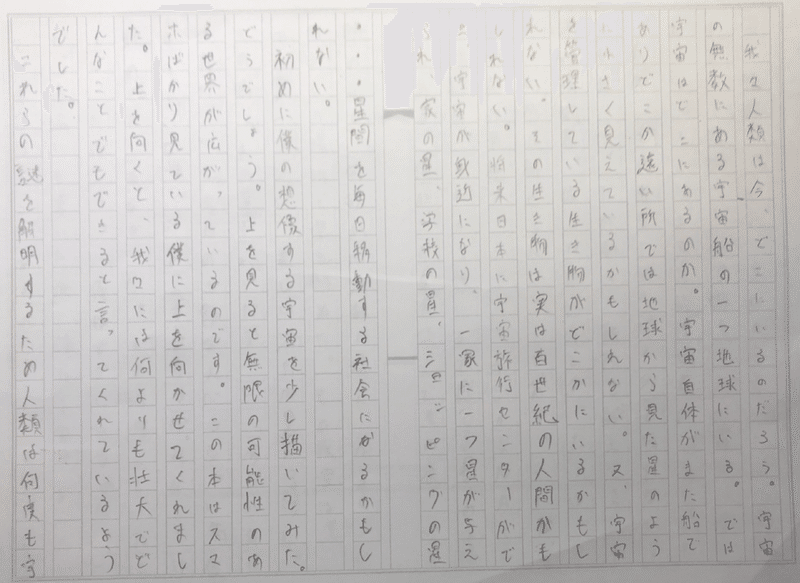 我々人類は今、どこにいるのだろう。宇宙
の無数にある宇宙船の一つ地球にいる。では
宇宙はどこにあるのか。宇宙自体がまた船で
ありどこか遠い所では地球から見た星のよう
に小さく見えているかもしれない。又、宇宙
を管理している生き物がどこかにいるかもし
れない。その生き物は実は百世紀の人間かも
しれない。将来日本に宇宙旅行センターがで
き宇宙が身近になり、一家に一つ星が与え
られ、家の星、学校の星、ショッピングの星
・・・星間を毎日移動する社会になるかもし
れない。
初めに僕の想像する宇宙を少し描いてみた。
どうでしょう。上を見ると無限の可能性のあ
る世界が広がっているのです。この本はスマ
ホばかり見ている僕に上を向かせてくれまし
た。上を向くと、我々には何よりも壮大でど
んなことでもできると言ってくれているよう
でした。
これらの謎を解明するため人類は何度も宇